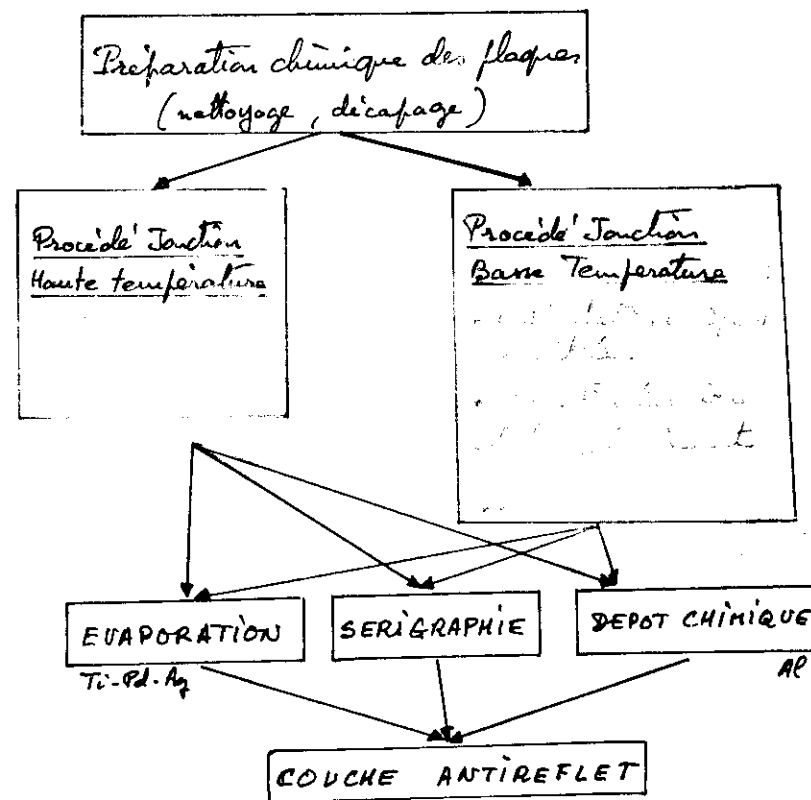 Préparation chimique des plaques
(nettoyage, décapage)
Procédé Jonction
Haute température
Procédé Jonction
Basse Température
EVAPORATION
Ti-Pd-Ag
SERIGRAPHIE
DEPOT CHIMIQUE
Al
COUCHE ANTIREFLET